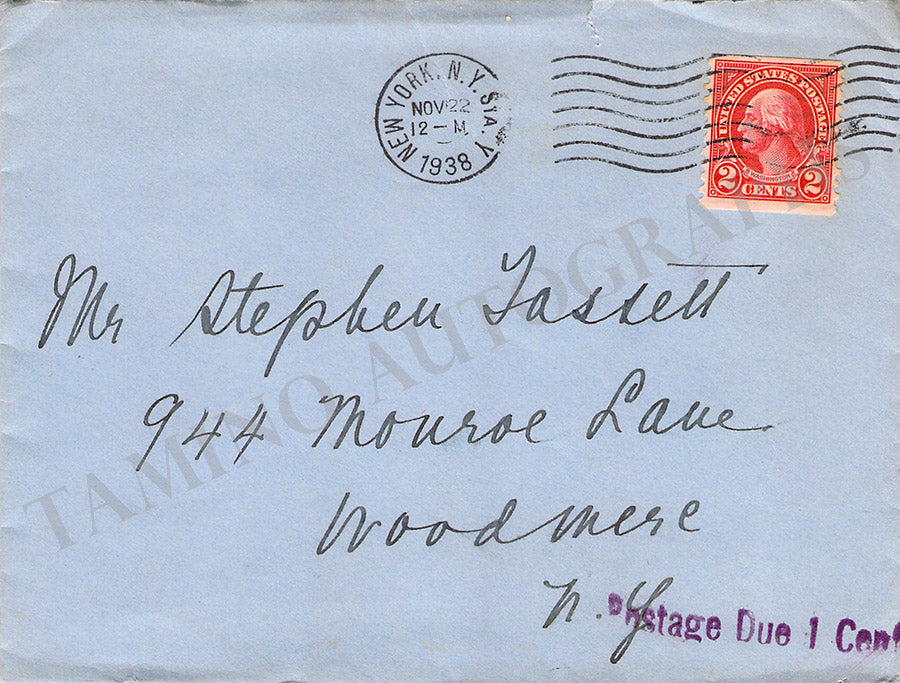 NEW YORK, N.Y. STA. Y
NOV 22
12 – M
1938
UNITED STATES POSTAGE
WASHINGTON
2 CENTS 2
Mr Stephen Fassett
944 Monroe Lane
Woodmere
N.Y.
Postage Due 1 Cent
TAMINO AUTOGRAPHS